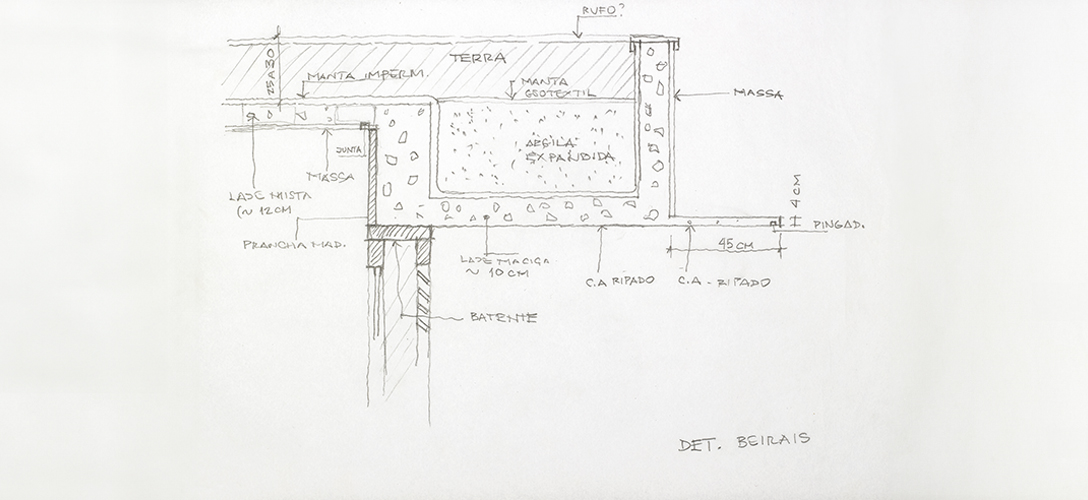 RUFO?
25 A 30
TERRA
MANTA IMPERM.
MANTA
GEOTEXTIL
MASSA
ARGILA
EXPANDIDA
JUNTA
MASSA
LAJE MISTA
(~ 12CM
PRANCHA MAD.
4 CM
PINGAD.
45 CM
LAJE MACIÇA
~ 10 CM
C.A RIPADO
C.A - RIPADO
BATENTE
DET. BEIRAIS